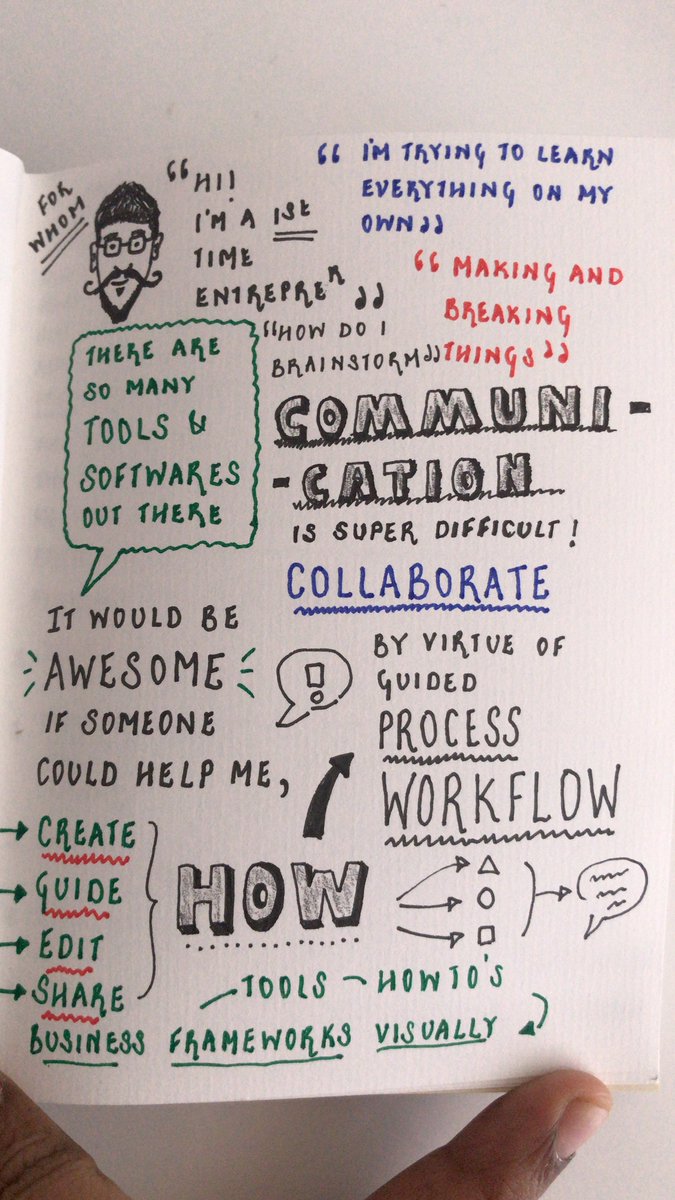 FOR
WHOM
"HI!
I'M A 1ST
TIME
ENTREPRER"
"I'M TRYING TO LEARN
EVERYTHING ON MY
OWN"
"MAKING AND
BREAKING
THINGS"
"HOW DO I
BRAINSTORM"
THERE ARE
SO MANY
TOOLS &
SOFTWARES
OUT THERE
COMMUNI-
-CATION
IS SUPER DIFFICULT!
COLLABORATE
BY VIRTUE OF
GUIDED
PROCESS
WORKFLOW
IT WOULD BE
AWESOME
IF SOMEONE
COULD HELP ME,
→ CREATE
→ GUIDE
→ EDIT
→ SHARE
HOW
TOOLS - HOWTO'S
BUSINESS FRAMEWORKS VISUALLY